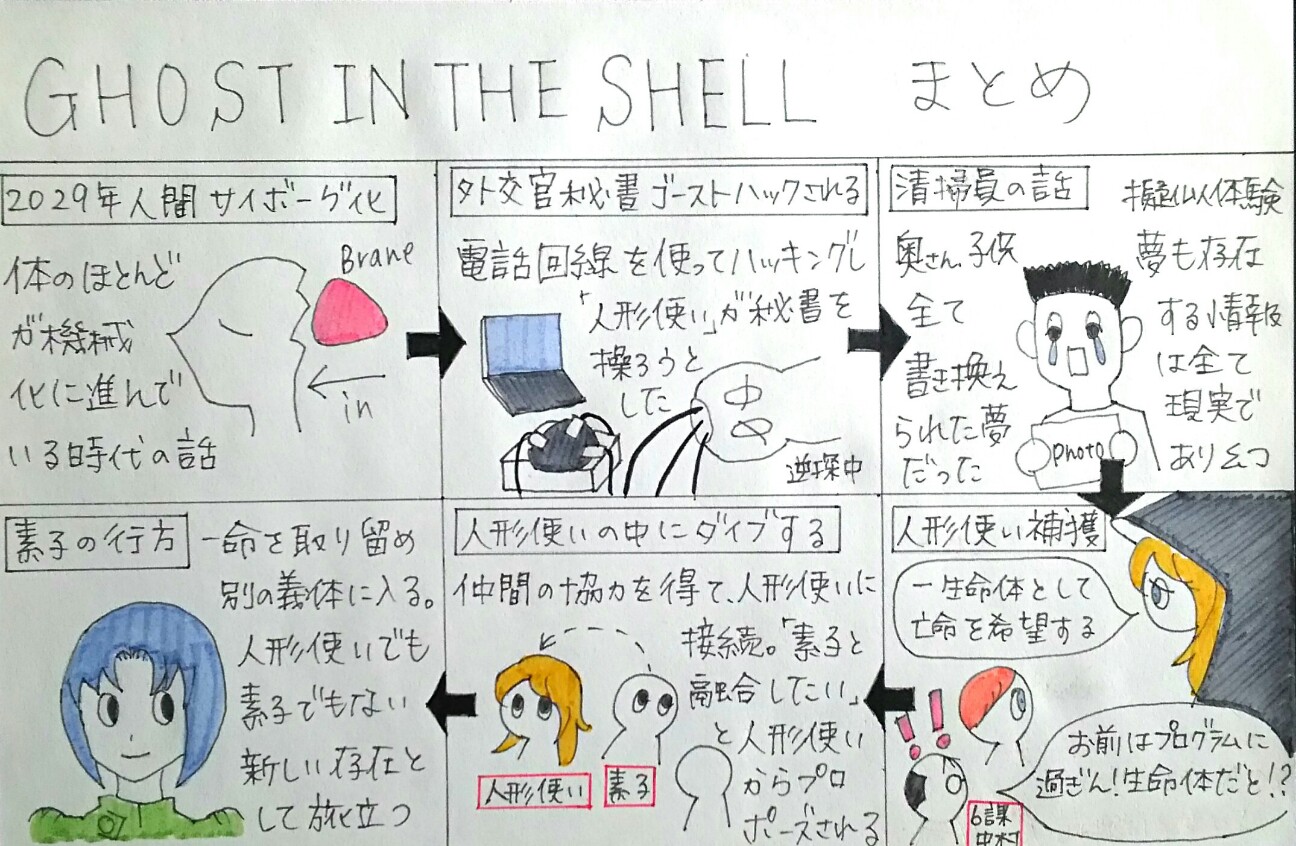 GHOST IN THE SHELL まとめ
2029年人間サイボーグ化
体のほとんど
が機械
化に進んで
いる時代の話
Brane
in
外交官秘書ゴーストハックされる
電話回線を使ってハッキングし
「人形使い」が秘書を
操ろうと
した
逆探中
清掃員の話
擬似体験
奥さん、子供
全て
書き換え
られた夢
だった
夢も存在
する情報
は全て
現実で
あり幻
photo
人形使い補獲
一生命体として
亡命を希望する
お前はプログラムに
過ぎん!生命体だと!?
!!
6課
中村
人形使いの中にダイブする
仲間の協力を得て、人形使いに
接続。「素子と
融合したい」
と人形使い
からプロ
ポーズされる
人形使い
素子
素子の行方
一命を取り留め
別の義体に入る。
人形使いでも
素子でもない
新しい存在と
して旅立つ